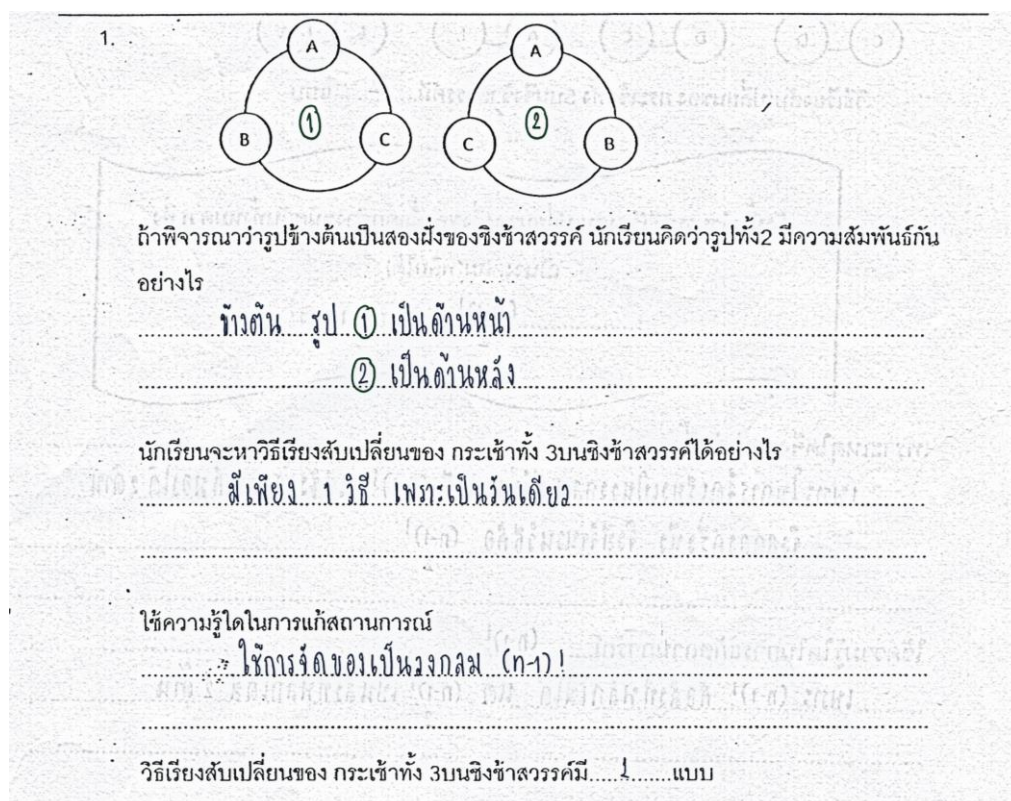 1.
A A
① ②
B C C B
ถ้าพิจารณาว่ารูปข้างต้นเป็นสองฝั่งของชิงช้าสวรรค์ นักเรียนคิดว่ารูปทั้ง2 มีความสัมพันธ์กัน
อย่างไร
ข้างต้น รูป ① เป็นด้านหน้า
② เป็นด้านหลัง
นักเรียนจะหาวิธีเรียงสับเปลี่ยนของ กระเช้าทั้ง 3บนชิงช้าสวรรค์ได้อย่างไร
มีเพียง 1 วิธี เพราะเป็นอันเดียว
ใช้ความรู้ใดในการแก้สถานการณ์
ใช้การจัดของเป็นวงกลม (n-1)!
วิธีเรียงสับเปลี่ยนของ กระเช้าทั้ง 3บนชิงช้าสวรรค์มี.....1.......แบบ